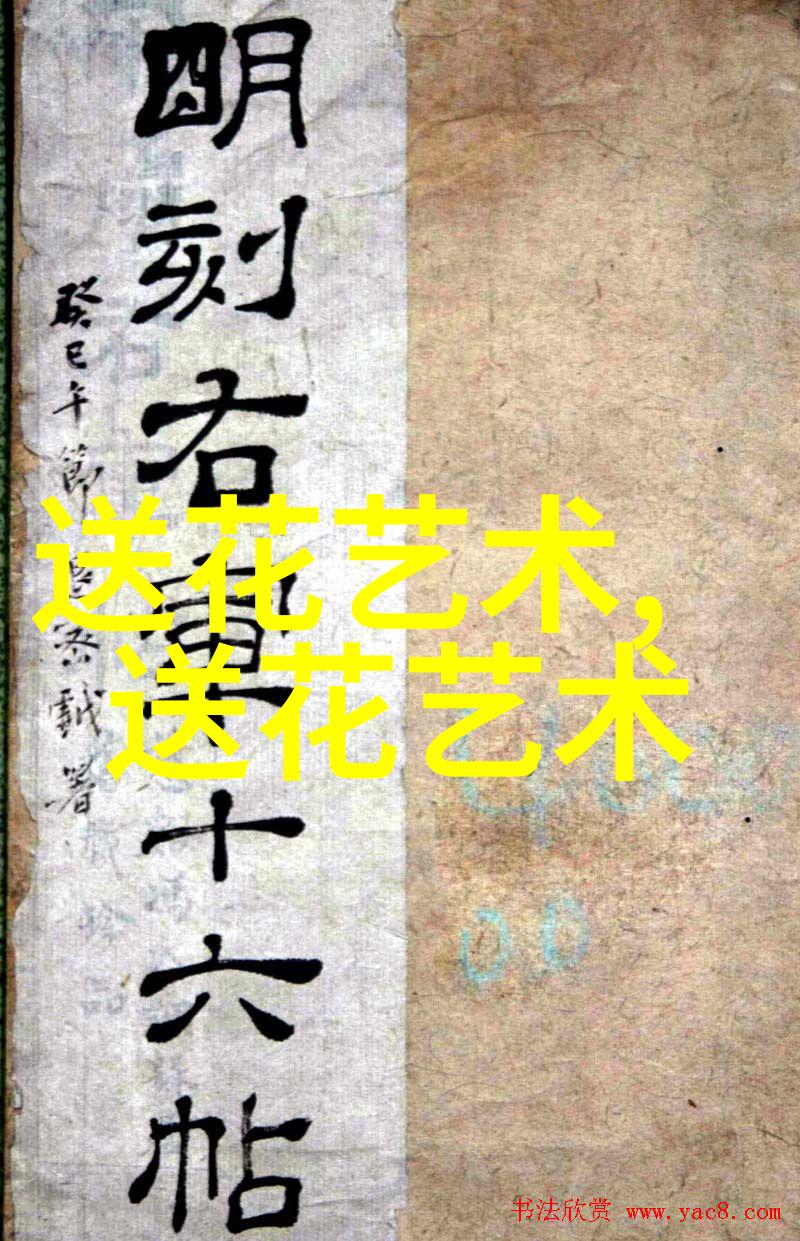 明刻右軍十六帖
癸巳午節署
送花艺术，
送花艺术
书法欣赏 www.yac8.com